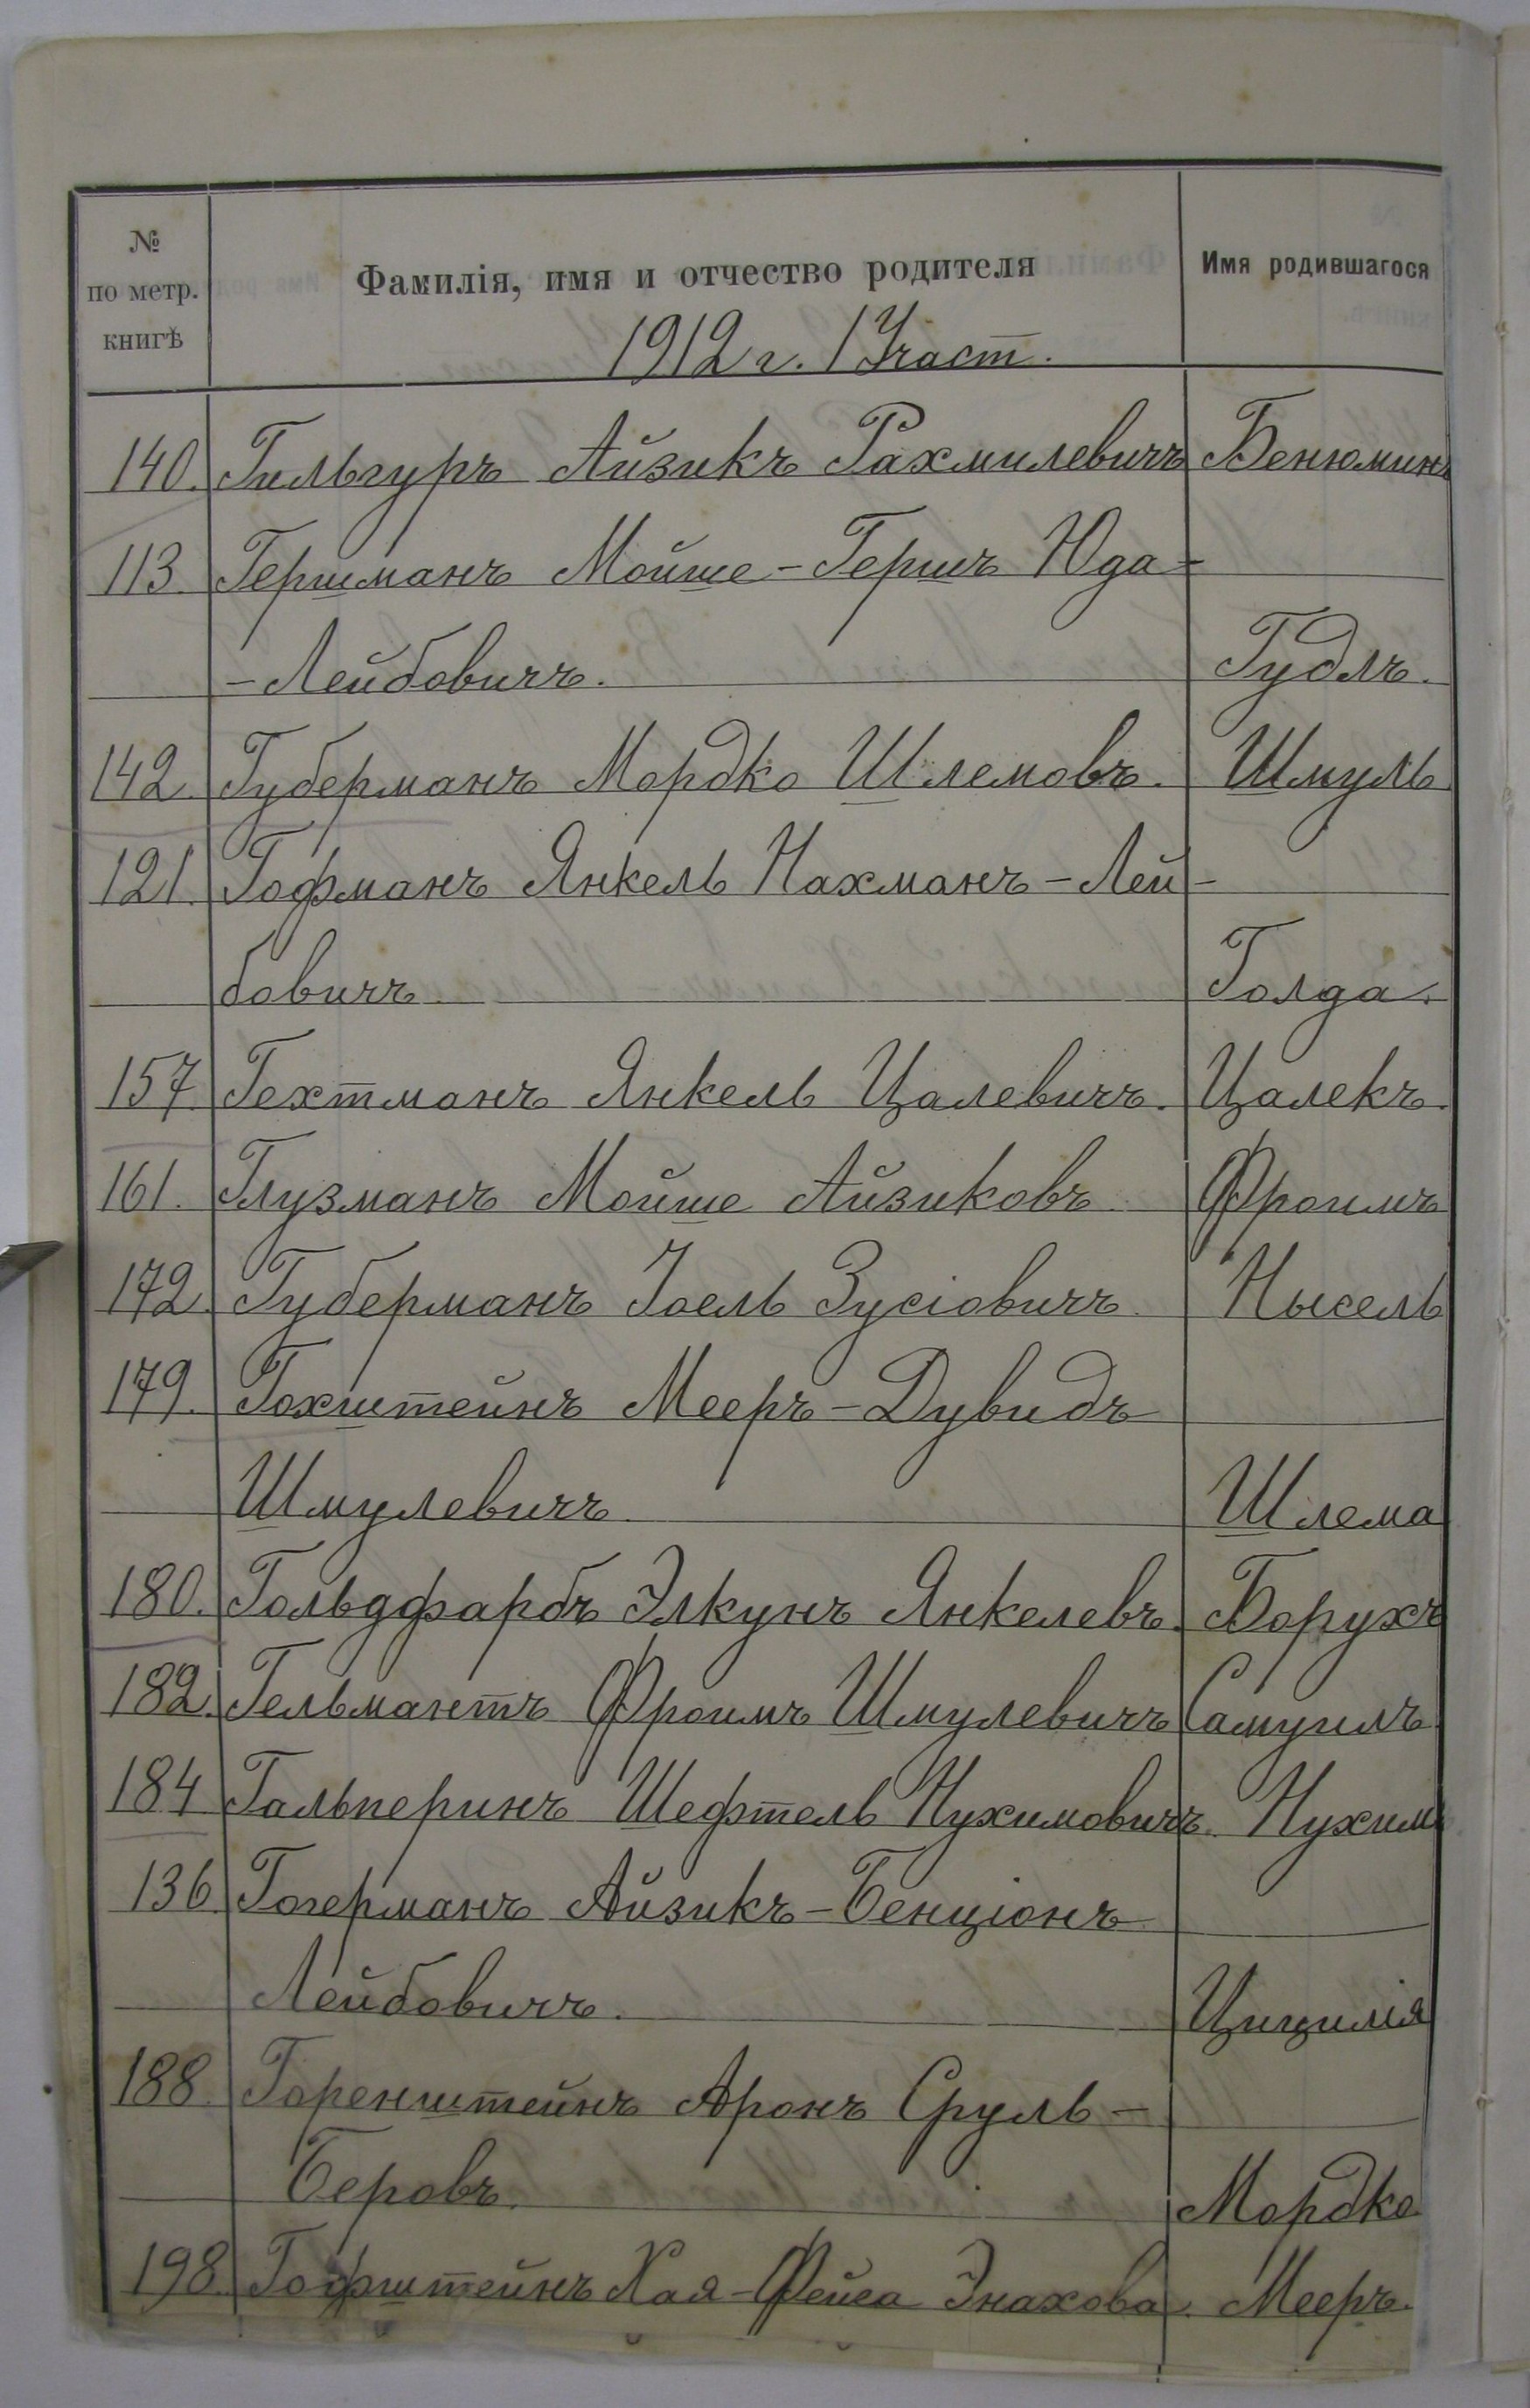 № по метр. книгѣ Фамилія, имя и отчество родителя Имя родившагося
1912 г. 1 Участ.
140. Гильгуръ Айзикъ Рахмилевичъ Бенюминъ
113. Гершманъ Мойше-Гершъ Юда-
-Лейбовичъ. Гудль.
142. Губерманъ Мордко Шлемовъ. Шмуль
121. Гофманъ Янкель Нахманъ-Лей-
бовичъ Голда.
157. Гехтманъ Янкель Цалевичъ. Цалекъ.
161. Глузманъ Мойше Айзиковъ Фроимъ
172. Губерманъ Іоель Зусіовичъ Нысель
179. Гохштейнъ Мееръ-Дувидъ
Шмулевичъ Шлема
180. Гольдфарбъ Элкунъ Янкелевъ. Борухъ
182. Гельмантъ Фроимъ Шмулевичъ Самуилъ
184 Гальперинъ Шефтель Нухимовичъ. Нухимъ
136. Гогерманъ Айзикъ-Бенціонъ
Лейбовичъ. Цицилія
188. Горенштейнъ Аронъ Сруль-
Беровъ. Мордко
198. Гофштейнъ Хая-Фейга Энахова. Мееръ.